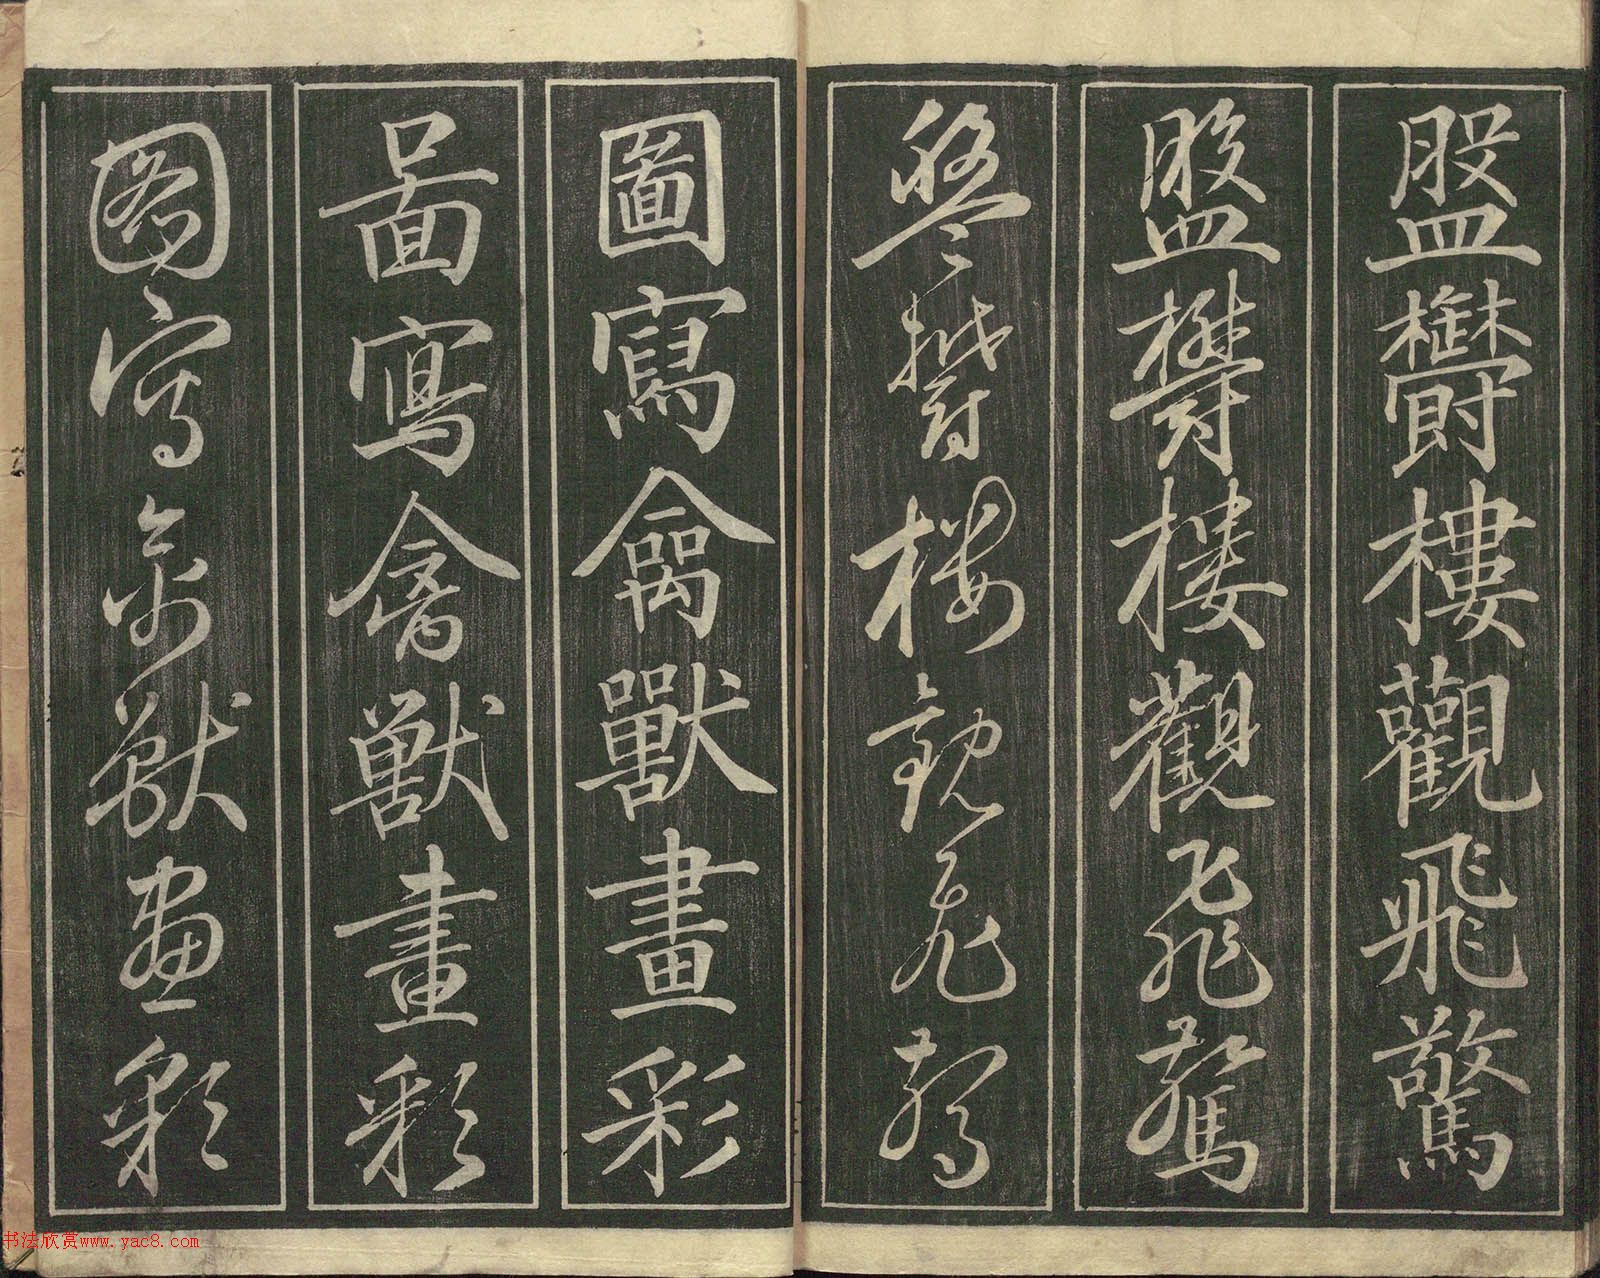 盤鬱樓觀飛驚
盤鬱樓觀飛驚
盤鬱樓觀飛驚
圖寫禽獸畫彩
啚寫禽獸畫彩
图写禽獸畫彩
书法欣赏www.yac8.com